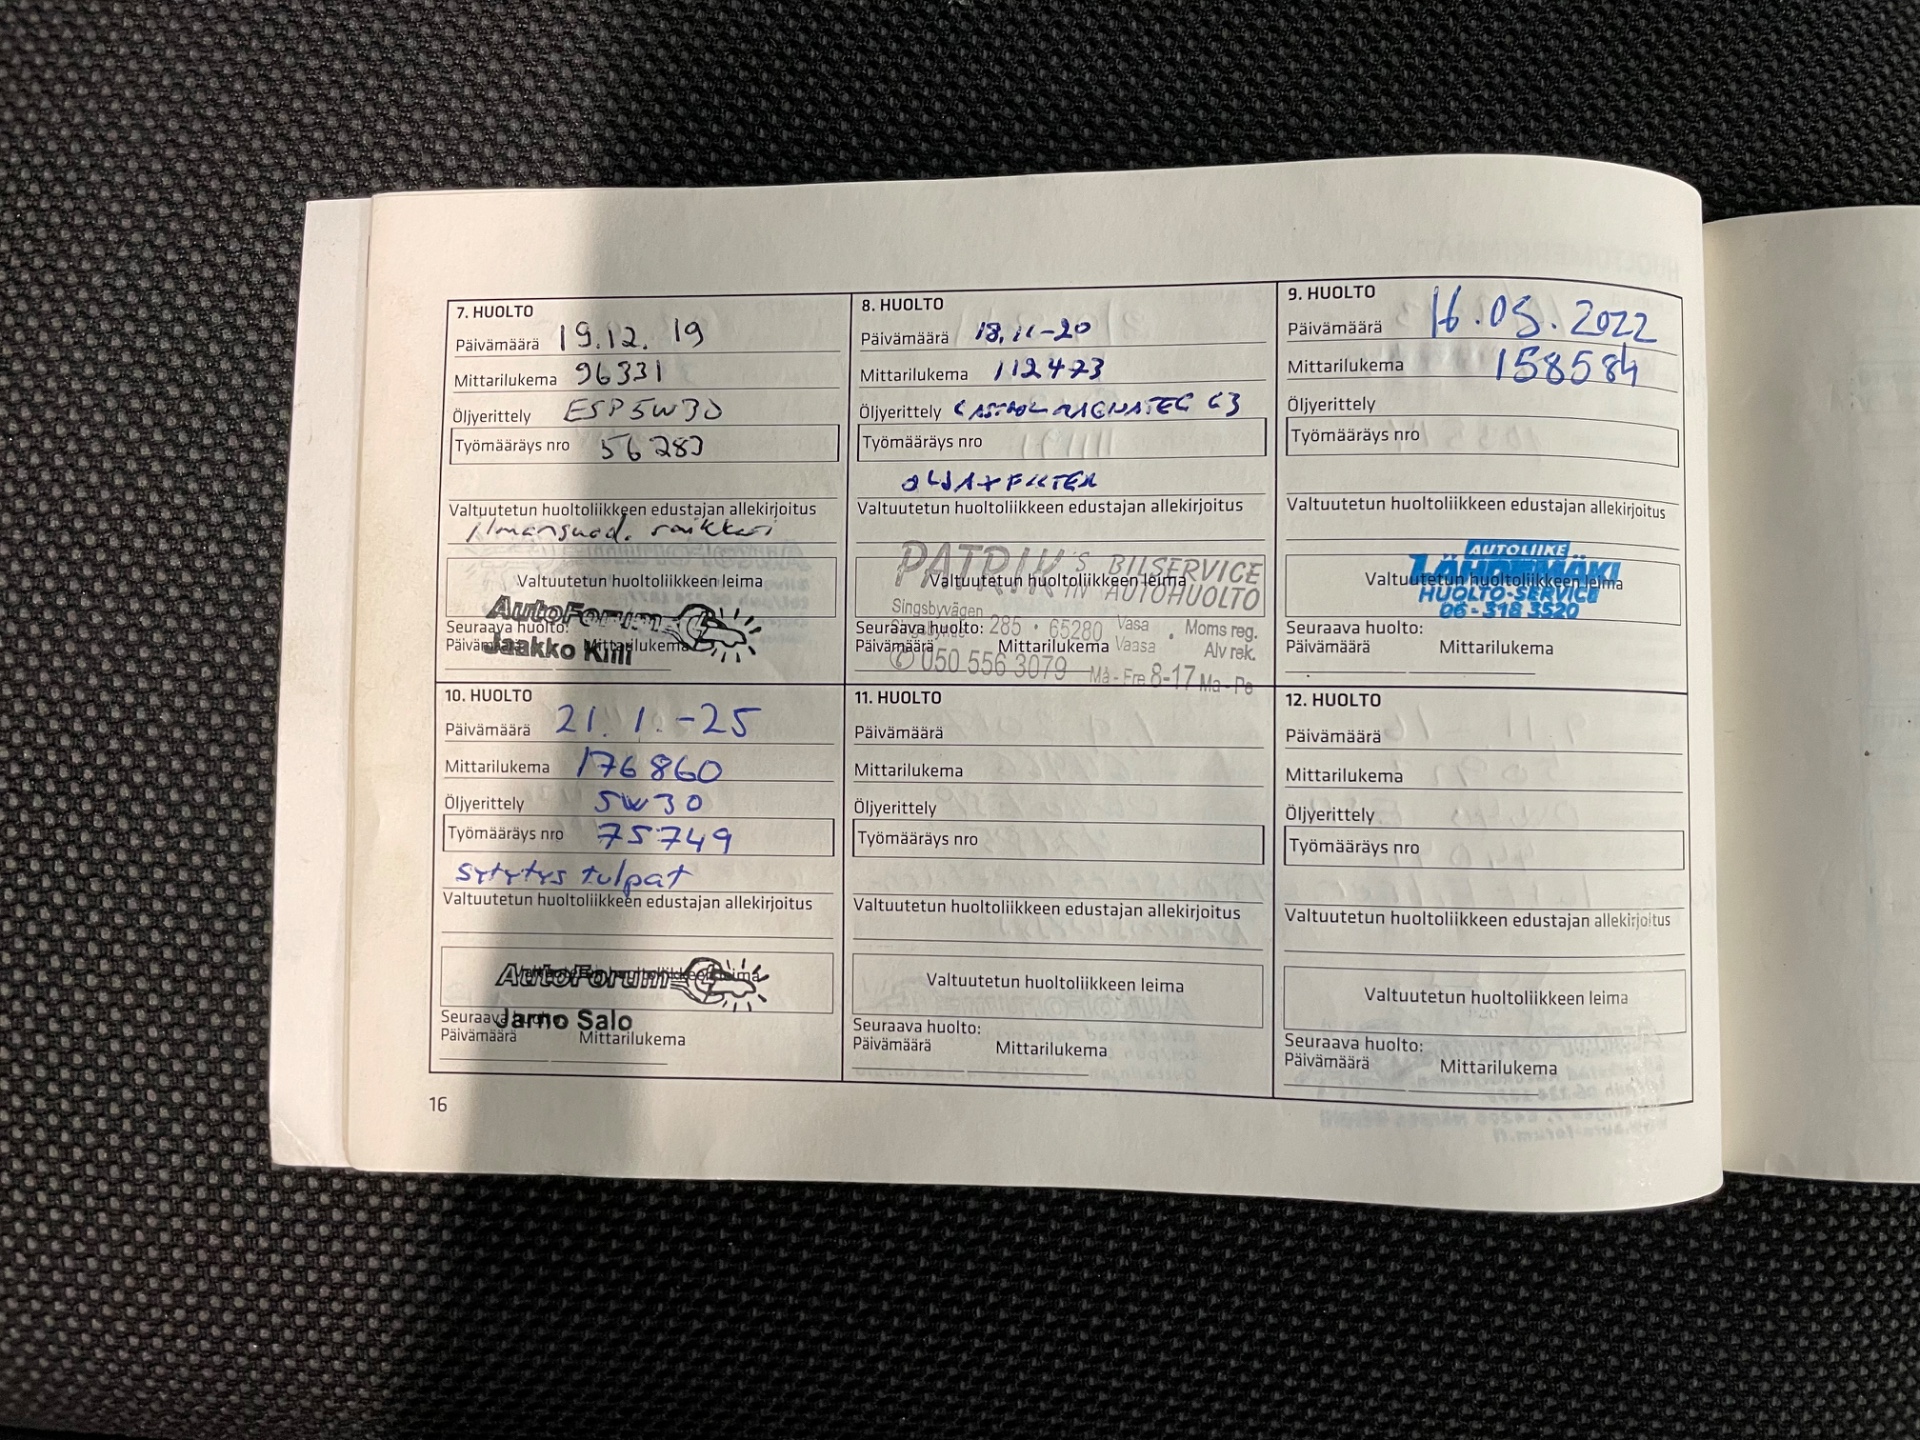 7. HUOLTO
Päivämäärä 19.12. 19
Mittarilukema 96331
Öljyerittely ESP 5W30
Työmääräys nro 56283
Valtuutetun huoltoliikkeen edustajan allekirjoitus
Ilmansuod. raikkari
Valtuutetun huoltoliikkeen leima
AutoForum
Seuraava huolto:
Jaakko Kiili
Päivämäärä Mittarilukema
8. HUOLTO
Päivämäärä 18.11-20
Mittarilukema 112473
Öljyerittely CASTROL MAGNATEC C3
Työmääräys nro
OLJA + FILTER
Valtuutetun huoltoliikkeen edustajan allekirjoitus
PATRIK'S BILSERVICE
IN AUTOHUOLTO
Valtuutetun huoltoliikkeen leima
Singsbyvägen
285 • 65280 Vasa Vaasa • Moms reg. Alv rek.
Seuraava huolto:
Päivämäärä Mittarilukema
050 556 3079 Må - Fre 8-17 Ma - Pe
9. HUOLTO
Päivämäärä 16.05.2022
Mittarilukema 158584
Öljyerittely
Työmääräys nro
Valtuutetun huoltoliikkeen edustajan allekirjoitus
AUTOLIIKE
LÄHDEMÄKI
Valtuutetun huoltoliikkeen leima
HUOLTO-SERVICE
06 - 318 3520
Seuraava huolto:
Päivämäärä Mittarilukema
10. HUOLTO
Päivämäärä 21.1.-25
Mittarilukema 176860
Öljyerittely 5W30
Työmääräys nro 75749
sytytys tulpat
Valtuutetun huoltoliikkeen edustajan allekirjoitus
Valtuutetun huoltoliikkeen leima
AutoForum
Seuraava huolto:
Jarno Salo
Päivämäärä Mittarilukema
11. HUOLTO
Päivämäärä
Mittarilukema
Öljyerittely
Työmääräys nro
Valtuutetun huoltoliikkeen edustajan allekirjoitus
Valtuutetun huoltoliikkeen leima
Seuraava huolto:
Päivämäärä Mittarilukema
12. HUOLTO
Päivämäärä
Mittarilukema
Öljyerittely
Työmääräys nro
Valtuutetun huoltoliikkeen edustajan allekirjoitus
Valtuutetun huoltoliikkeen leima
Seuraava huolto:
Päivämäärä Mittarilukema
16